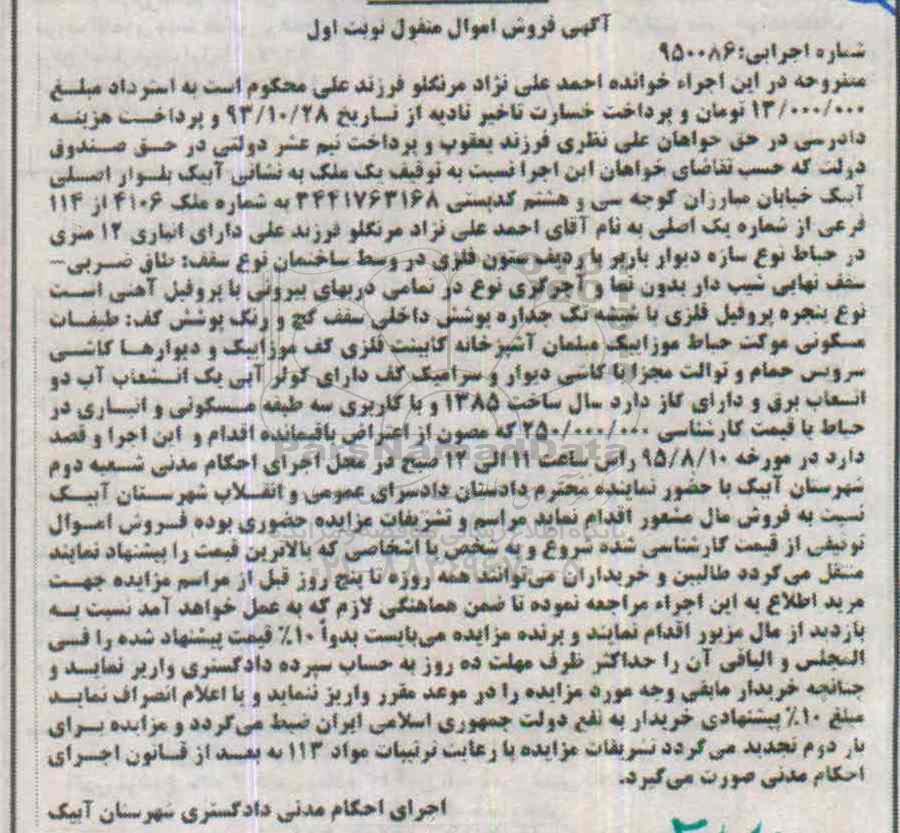 آگهی فروش اموال منقول نوبت اول
شماره اجرایی: ۹۵۰۰۸۶
مفروحه در این اجراء خوانده احمد علی نژاد مرنگلو فرزند علی محکوم است به استرداد مبلغ
۱۳/۰۰۰/۰۰۰ تومان و پرداخت خسارت تاخیر تادیه از تاریخ ۹۳/۱۰/۲۸ و پرداخت هزینه
دادرسی در حق خواهان علی نظری فرزند یعقوب و پرداخت نیم عشر دولتی در حق صندوق
دولت که حسب تقاضای خواهان این اجرا نسبت به توقیف یک ملک به نشانی آبیک بلوار اصلی
آبیک خیابان مبارزان کوچه سی و هشتم کدپستی ۳۴۴۱۷۶۳۱۶۸ به شماره ملک ۴۱۰۶ از ۱۱۴
فرعی از شماره یک اصلی به نام آقای احمد علی نژاد مرنگلو فرزند علی دارای انباری ۱۲ متری
در حیاط نوع سازه دیوار باربر با ردیف ستون فلزی در وسط ساختمان نوع سقف: طاق ضربی-
سقف نهایی شیب دار بدون نما و آجرکری نوع در تمامی دربهای بیرونی با پروفیل آهنی است
نوع پنجره پروفیل فلزی با شیشه تک جداره پوشش داخلی سقف گچ و رنگ پوشش کف: طبقات
مسکونی موکت حیاط موزاییک مبلمان آشپزخانه کابینت فلزی کف موزاییک و دیوارها کاشی
سرویس حمام و توالت مجزا با کاشی دیوار و سرامیک کف دارای کولر آبی یک انشعاب آب دو
انشعاب برق و دارای گاز دارد سال ساخت ۱۳۸۵ و با کاربری سه طبقه مسکونی و انباری در
حیاط با قیمت کارشناسی ۲۵۰/۰۰۰/۰۰۰ که مصون از اعتراض باقیمانده اقدام و این اجرا و قصد
دارد در مورخه ۹۵/۸/۱۰ راس ساعت ۱۱ الی ۱۲ صبح در محل اجرای احکام مدنی شعبه دوم
شهرستان آبیک با حضور نماینده محترم دادستان دادسرای عمومی و انقلاب شهرستان آبیک
نسبت به فروش مال مشعور اقدام نماید مراسم و تشریفات مزایده حضوری بوده فروش اموال
توقیفی از قیمت کارشناسی شده شروع و به شخص یا اشخاصی که بالاترین قیمت را پیشنهاد نمایند
منتقل می گردد طالبین و خریداران می‌توانند همه روزه تا پنج روز قبل از مراسم مزایده جهت
مزید اطلاع به این اجراء مراجعه نموده تا ضمن هماهنگی لازم که به عمل خواهد آمد نسبت به
بازدید از مال مزبور اقدام نمایند و برنده مزایده می‌بایست بدواً ۱۰٪ قیمت پیشنهاد شده را فی
المجلس و الباقی آن را حداکثر ظرف مهلت ده روز به حساب سپرده دادگستری واریز نماید و
چنانچه خریدار مابقی وجه مورد مزایده را در موعد مقرر واریز ننماید و یا اعلام انصراف نماید
مبلغ ۱۰٪ پیشنهادی خریدار به نفع دولت جمهوری اسلامی ایران ضبط می‌گردد و مزایده برای
بار دوم تجدید می گردد تشریفات مزایده با رعایت ترتیبات مواد ۱۱۳ به بعد از قانون اجرای
احکام مدنی صورت می‌گیرد.
اجرای احکام مدنی دادگستری شهرستان آبیک